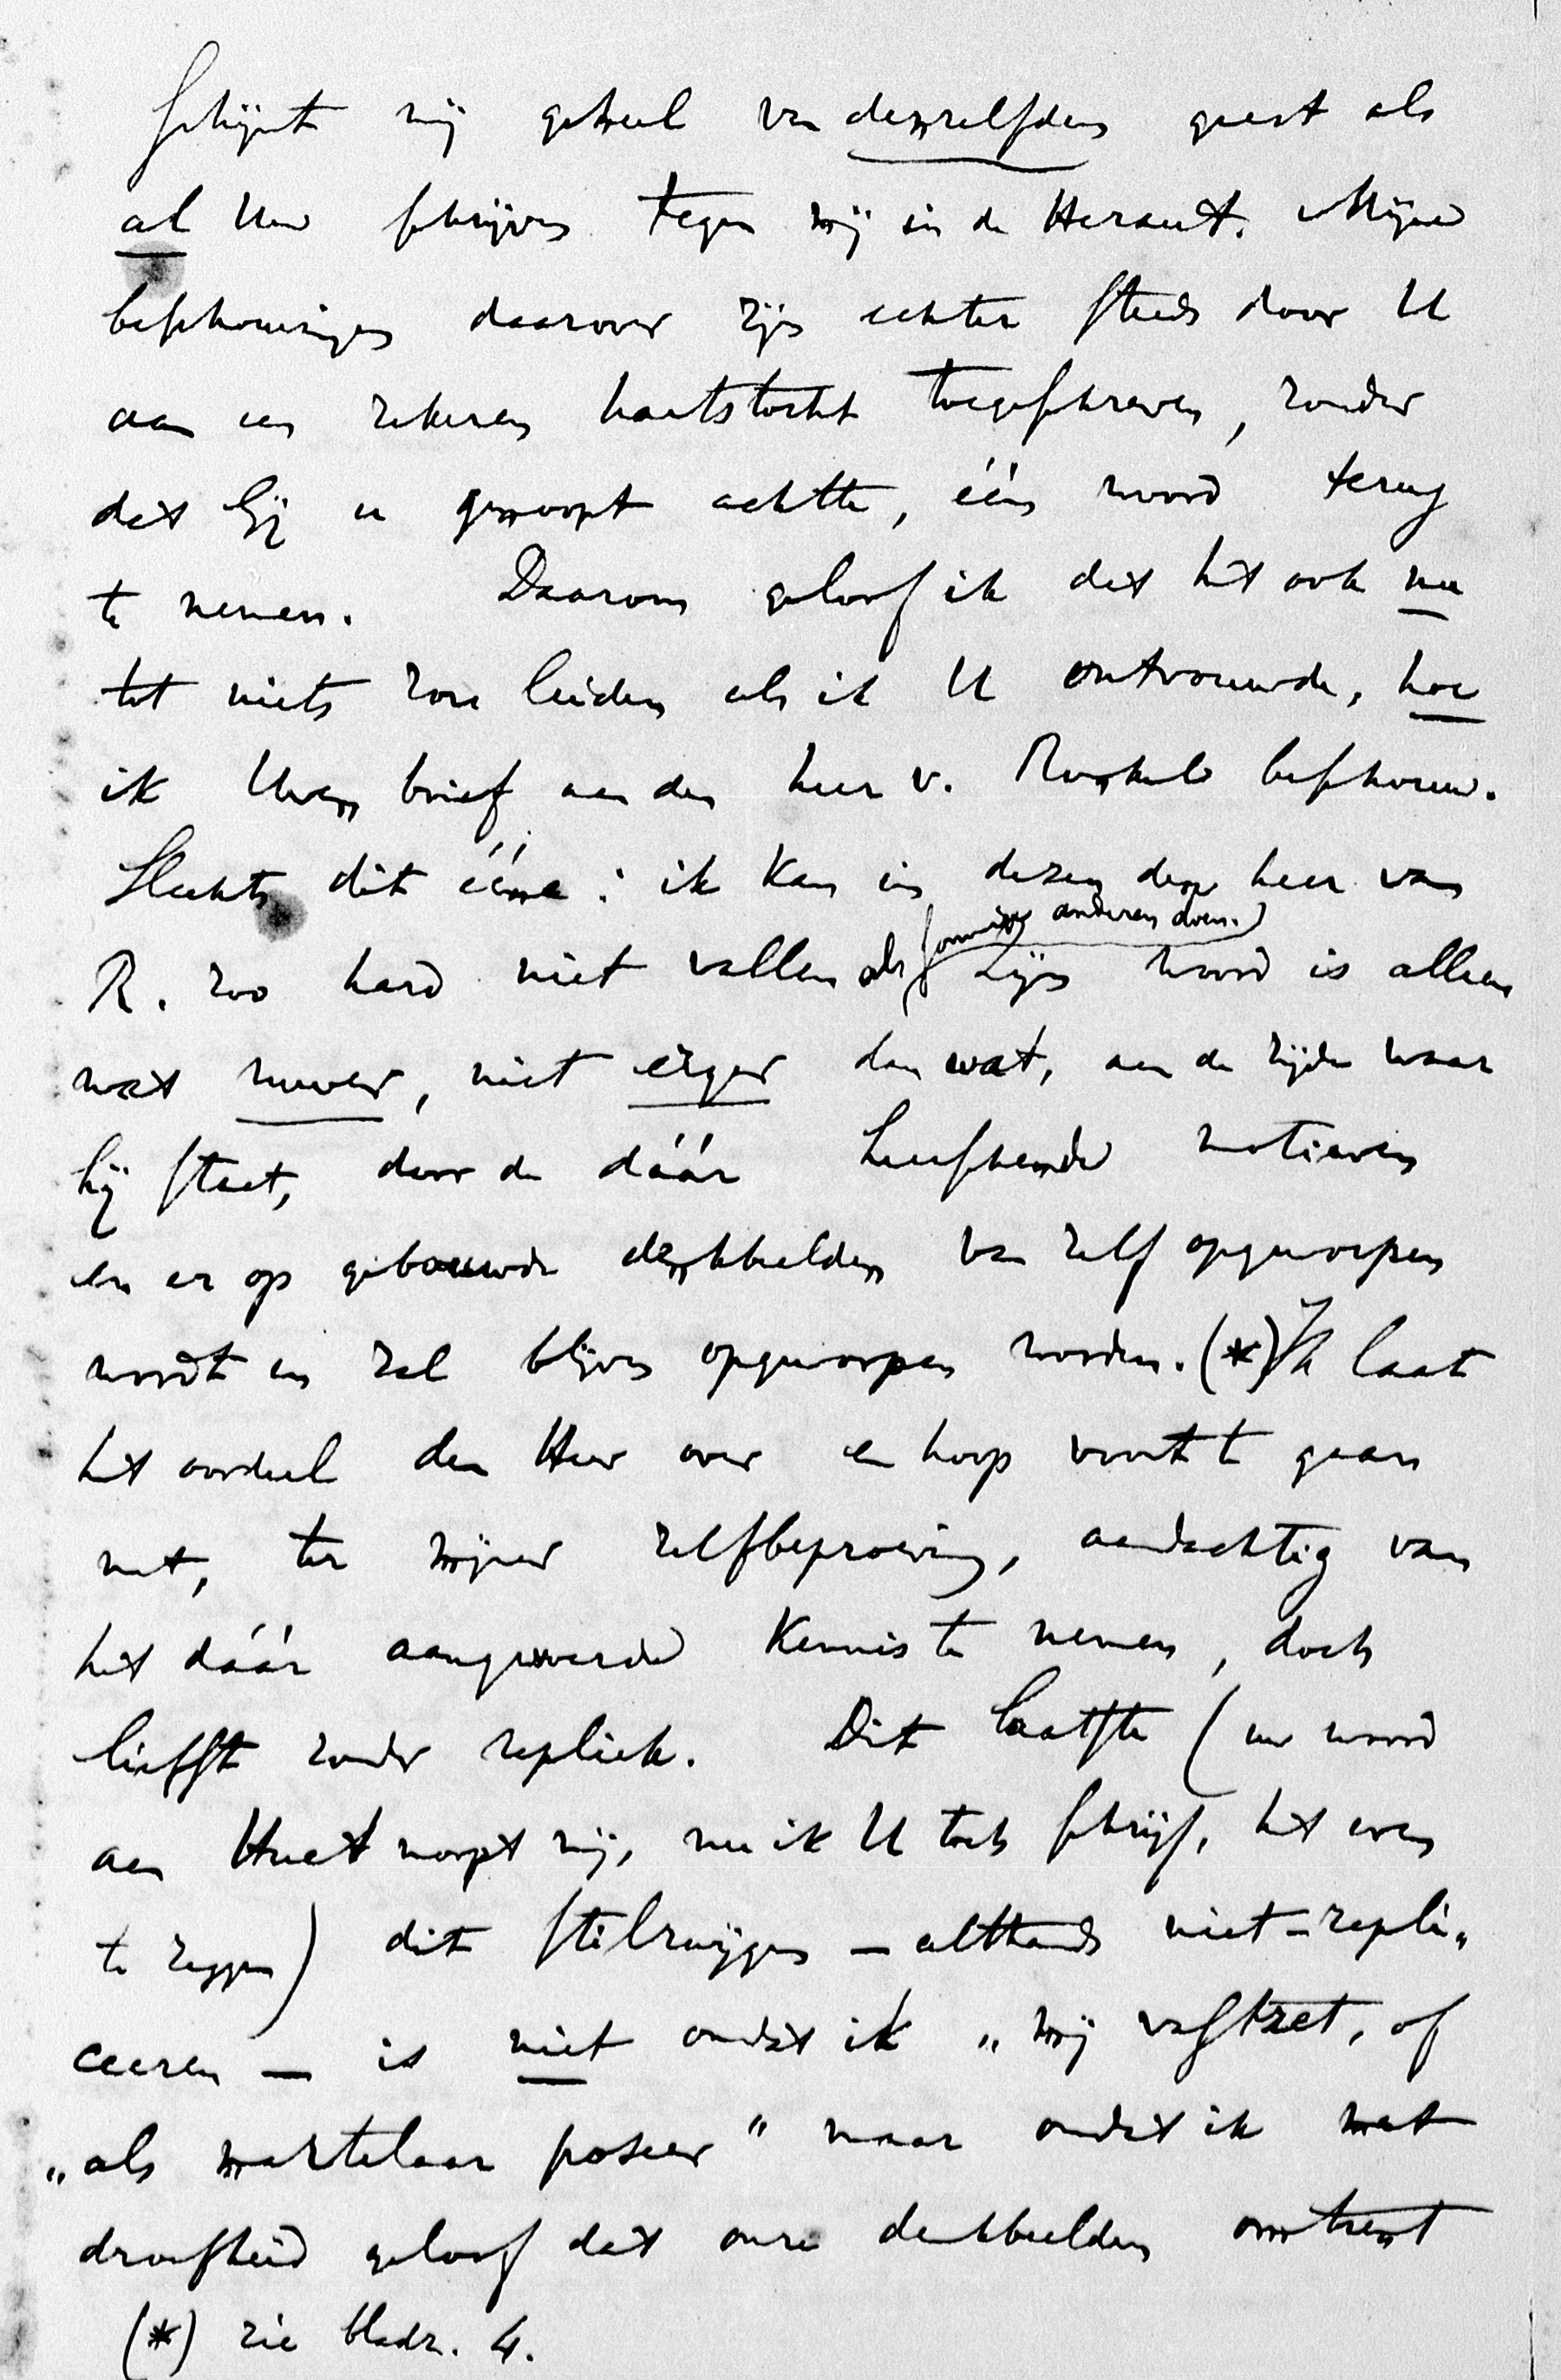 schijnt mij geheel van denzelfden geest als
al Uw schrijven tegen mij in de Heraut. Mijne
beschouwingen daarover zijn echter steeds door U
aan een zekeren hartstocht toegeschreven, zonder
dat Gij u genoopt achtte, één woord terug
te nemen. Daarom geloof ik dat het ook nu
tot niets zou leiden als ik U ontvouwde, hoe
ik Uwen brief aan den heer v. beschouw.
Slechts dit ééne: ik kan in dezen den heer van
R. zoo hard niet vallen als (sommige anderen doen.) Zijn woord is alleen
wat ruwer, niet erger dan wat, aan de zijde waar
hij staat, door de dáár heerschende motieven
en er op gebouwde denkbeelden van zelf opgeworpen
wordt en zal blijven opgeworpen worden. (*) Ik laat
het oordeel den Heer over en hoop voort te gaan
met, ter mijner zelfbeproeving, aandachtig van
het dáár aangevoerde kennis te nemen, doch
liefst zonder repliek. Dit laatste (uw woord
aan Huet noopt mij, nu ik U toch schrijf, het even
te zeggen) dit stilzwijgen — althands niet-repli„
ceeren — is niet omdat ik „mij vastzet, of
„als martelaar poseer" maar omdat ik met
droefheid geloof dat onze denkbeelden omtrent
(*) zie bladz. 4.